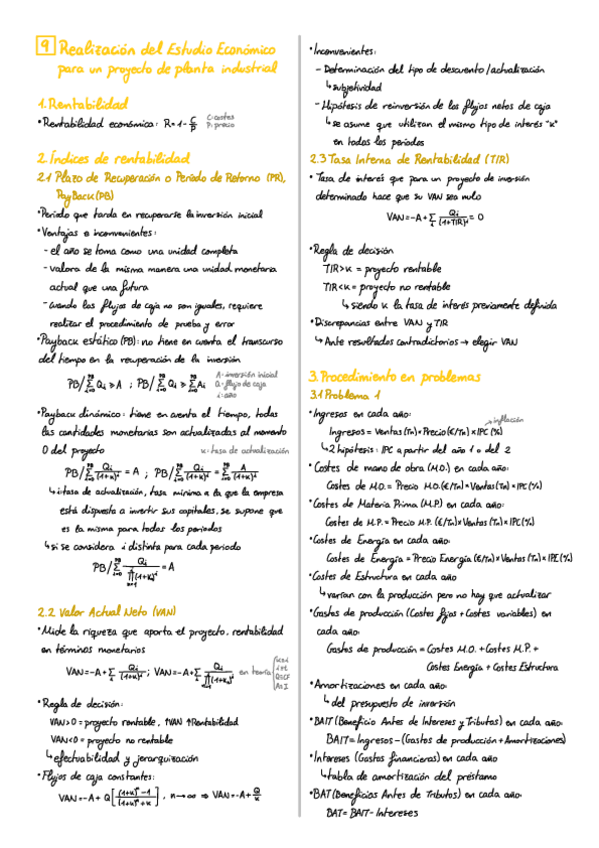 9 Realización del Estudio Económico
para un proyecto de planta industrial
1. Rentabilidad
• Rentabilidad económica: R=1-C/P C: costes
P: precio
2. Índices de rentabilidad
2.1 Plazo de Recuperación o Periodo de Retorno (PR),
PayBack (PB)
• Periodo que tarda en recuperarse la inversión inicial
• Ventajas e inconvenientes:
- el año se toma como una unidad completa
- valora de la misma manera una unidad monetaria
actual que una futura
- cuando los flujos de caja no son iguales, requiere
realizar el procedimiento de prueba y error
• Payback estático (PB): no tiene en cuenta el transcurso
del tiempo en la recuperación de la inversión
PB/ Σ Qi ≥ A ; PB/ Σ Qi ≥ Σ Ai A: inversión inicial
Q: flujo de caja
i: año
• Payback dinámico: tiene en cuenta el tiempo, todas
las cantidades monetarias son actualizadas al momento
0 del proyecto κ: tasa de actualización
PB/ Σ Qi/(1+κ)^i = A ; PB/ Σ Qi/(1+κ)^i = Σ A/(1+κ)^i
↳ i: tasa de actualización, tasa mínima a la que la empresa
está dispuesta a invertir sus capitales, se supone que
es la misma para todos los periodos
↳ si se considera i distinta para cada periodo
PB/ Σ Qi/∏(1+κ)^i = A
2.2 Valor Actual Neto (VAN)
• Mide la riqueza que aporta el proyecto, rentabilidad
en términos monetarios
VAN=-A+Σ Qi/(1+κ)^i ; VAN=-A+Σ Qi/∏(1+κ)^i en teoría
• Regla de decisión:
VAN>0 = proyecto rentable, ↑VAN ↑Rentabilidad
VAN<0 = proyecto no rentable
↳ efectuabilidad y jerarquización
• Flujos de caja constantes:
VAN=-A+Q[((1+κ)^n-1)/((1+κ)^n*κ)], n→∞ ⇒ VAN=-A+Q/κ
• Inconvenientes:
- Determinación del tipo de descuento/actualización
↳ subjetividad
- Hipótesis de reinversión de los flujos netos de caja
↳ se asume que utilizan el mismo tipo de interés "κ"
en todos los periodos
2.3 Tasa Interna de Rentabilidad (TIR)
• Tasa de interés que para un proyecto de inversión
determinado hace que su VAN sea nulo
VAN=-A+Σ Qi/(1+TIR)^i = 0
• Regla de decisión
TIR>κ = proyecto rentable
TIR<κ = proyecto no rentable
↳ siendo κ la tasa de interés previamente definida
• Discrepancias entre VAN y TIR
↳ Ante resultados contradictorios → elegir VAN
3. Procedimiento en problemas
3.1 Problema 1
• Ingresos en cada año: inflación
Ingresos = Ventas (Tn) × Precio (€/Tn) × IPC (%)
↳ 2 hipótesis: IPC a partir del año 1 o del 2
• Costes de mano de obra (M.O.) en cada año:
Costes de M.O. = Precio M.O. (€/Tn) × Ventas (Tn) × IPC (%)
• Costes de Materia Prima (M.P.) en cada año:
Costes de M.P. = Precio M.P. (€/Tn) × Ventas (Tn) × IPC (%)
• Costes de Energía en cada año:
Costes de Energía = Precio Energía (€/Tn) × Ventas (Tn) × IPC (%)
• Costes de Estructura en cada año
↳ varían con la producción pero no hay que actualizar
• Gastos de producción (Costes fijos + Costes variables) en
cada año:
Gastos de producción = Costes M.O. + Costes M.P. +
Costes Energía + Costes Estructura
• Amortizaciones en cada año:
↳ del presupuesto de inversión
• BAIT (Beneficio Antes de Intereses y Tributos) en cada año:
BAIT = Ingresos - (Gastos de producción + Amortizaciones)
• Intereses (Gastos financieros) en cada año
↳ tabla de amortización del préstamo
• BAT (Beneficios Antes de Tributos) en cada año:
BAT = BAIT - Intereses